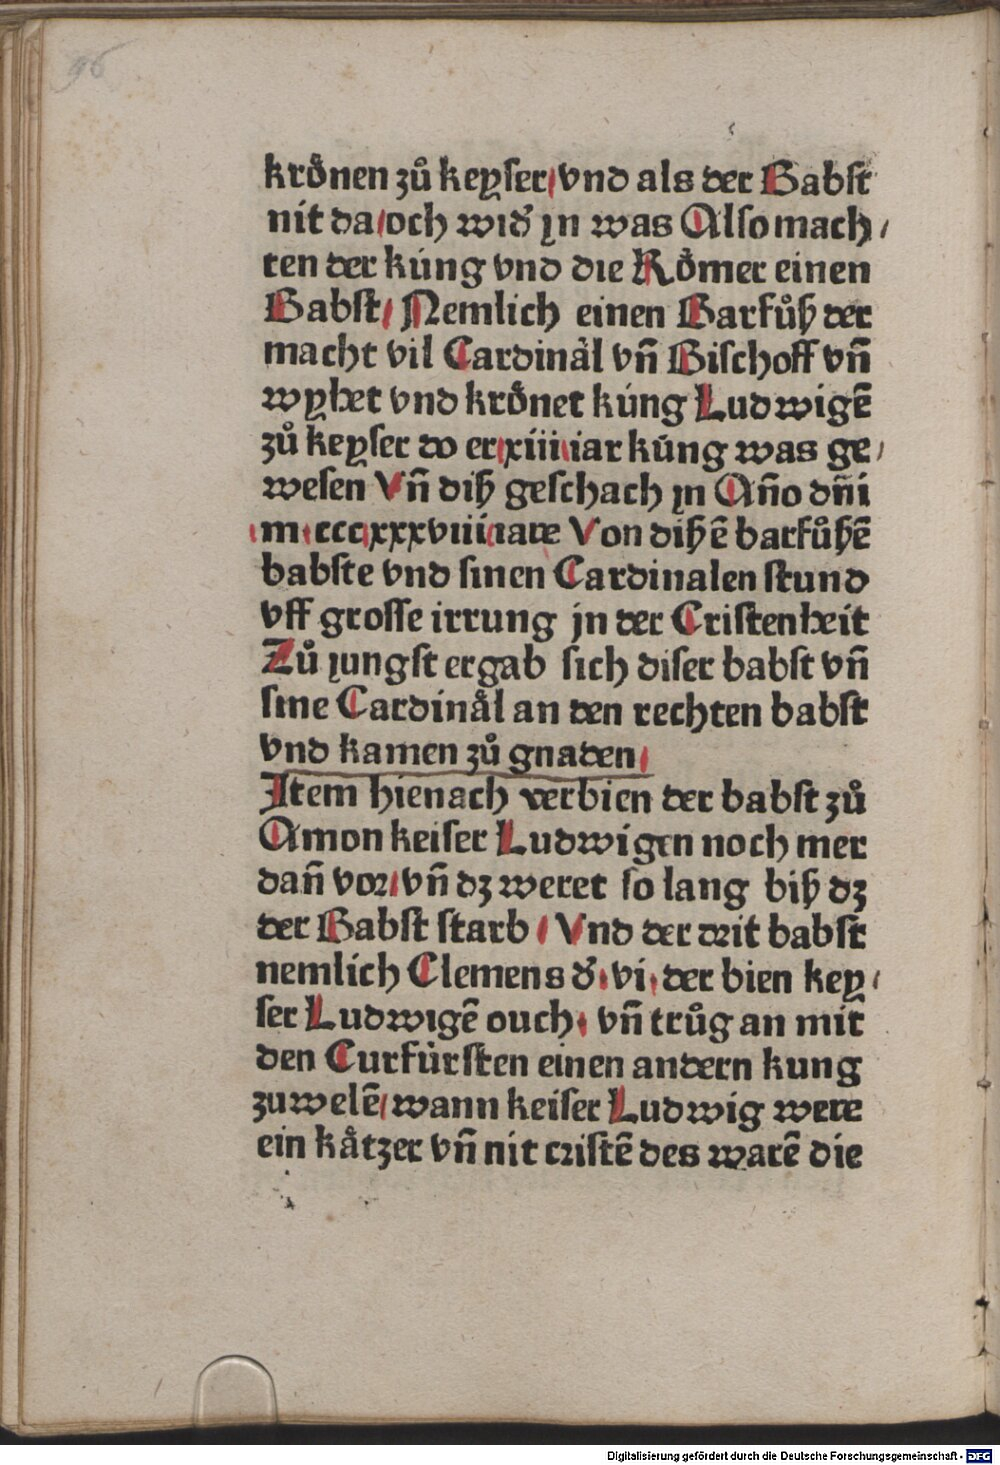 96
krönen zů keyser/ vnd als der Babst
nit da/ och wid' jn was Also mach/
ten der kúng vnd die Rőmer einen
Babst/ Nemlich einen Barfůß der
macht vil Cardinål vn̄ Bischoff vn̄
wyhet vnd krőnet kúng Ludwigē
zů keyser do er xiiii iar kúng was ge/
wesen Vn̄ diß geschach jn An̄o dn̄i
m·ccc xxxviiii iare Von dißē barfůßē
babste vnd sinen Cardinalen stund
vff grosse irrung jn der Cristenheit
Zů jungst ergab sich diser babst vn̄
sine Cardinål an den rechten babst
vnd kamen zů gnaden/
Item hienach verbien der babst zů
Amon keiser Ludwigen noch mer
dan̄ vor/ vn̄ dz weret so lang biß dz
der Babst starb / Vnd der drit babst
nemlich Clemens d'·vi· der bien key/
ser Ludwigē ouch· vn̄ trůg an mit
den Curfürsten einen andern kung
zuwelē/ wann keiser Ludwig were
ein kåtzer vn̄ nit cristē des warē die
Digitalisierung gefördert durch die Deutsche Forschungsgemeinschaft - DFG